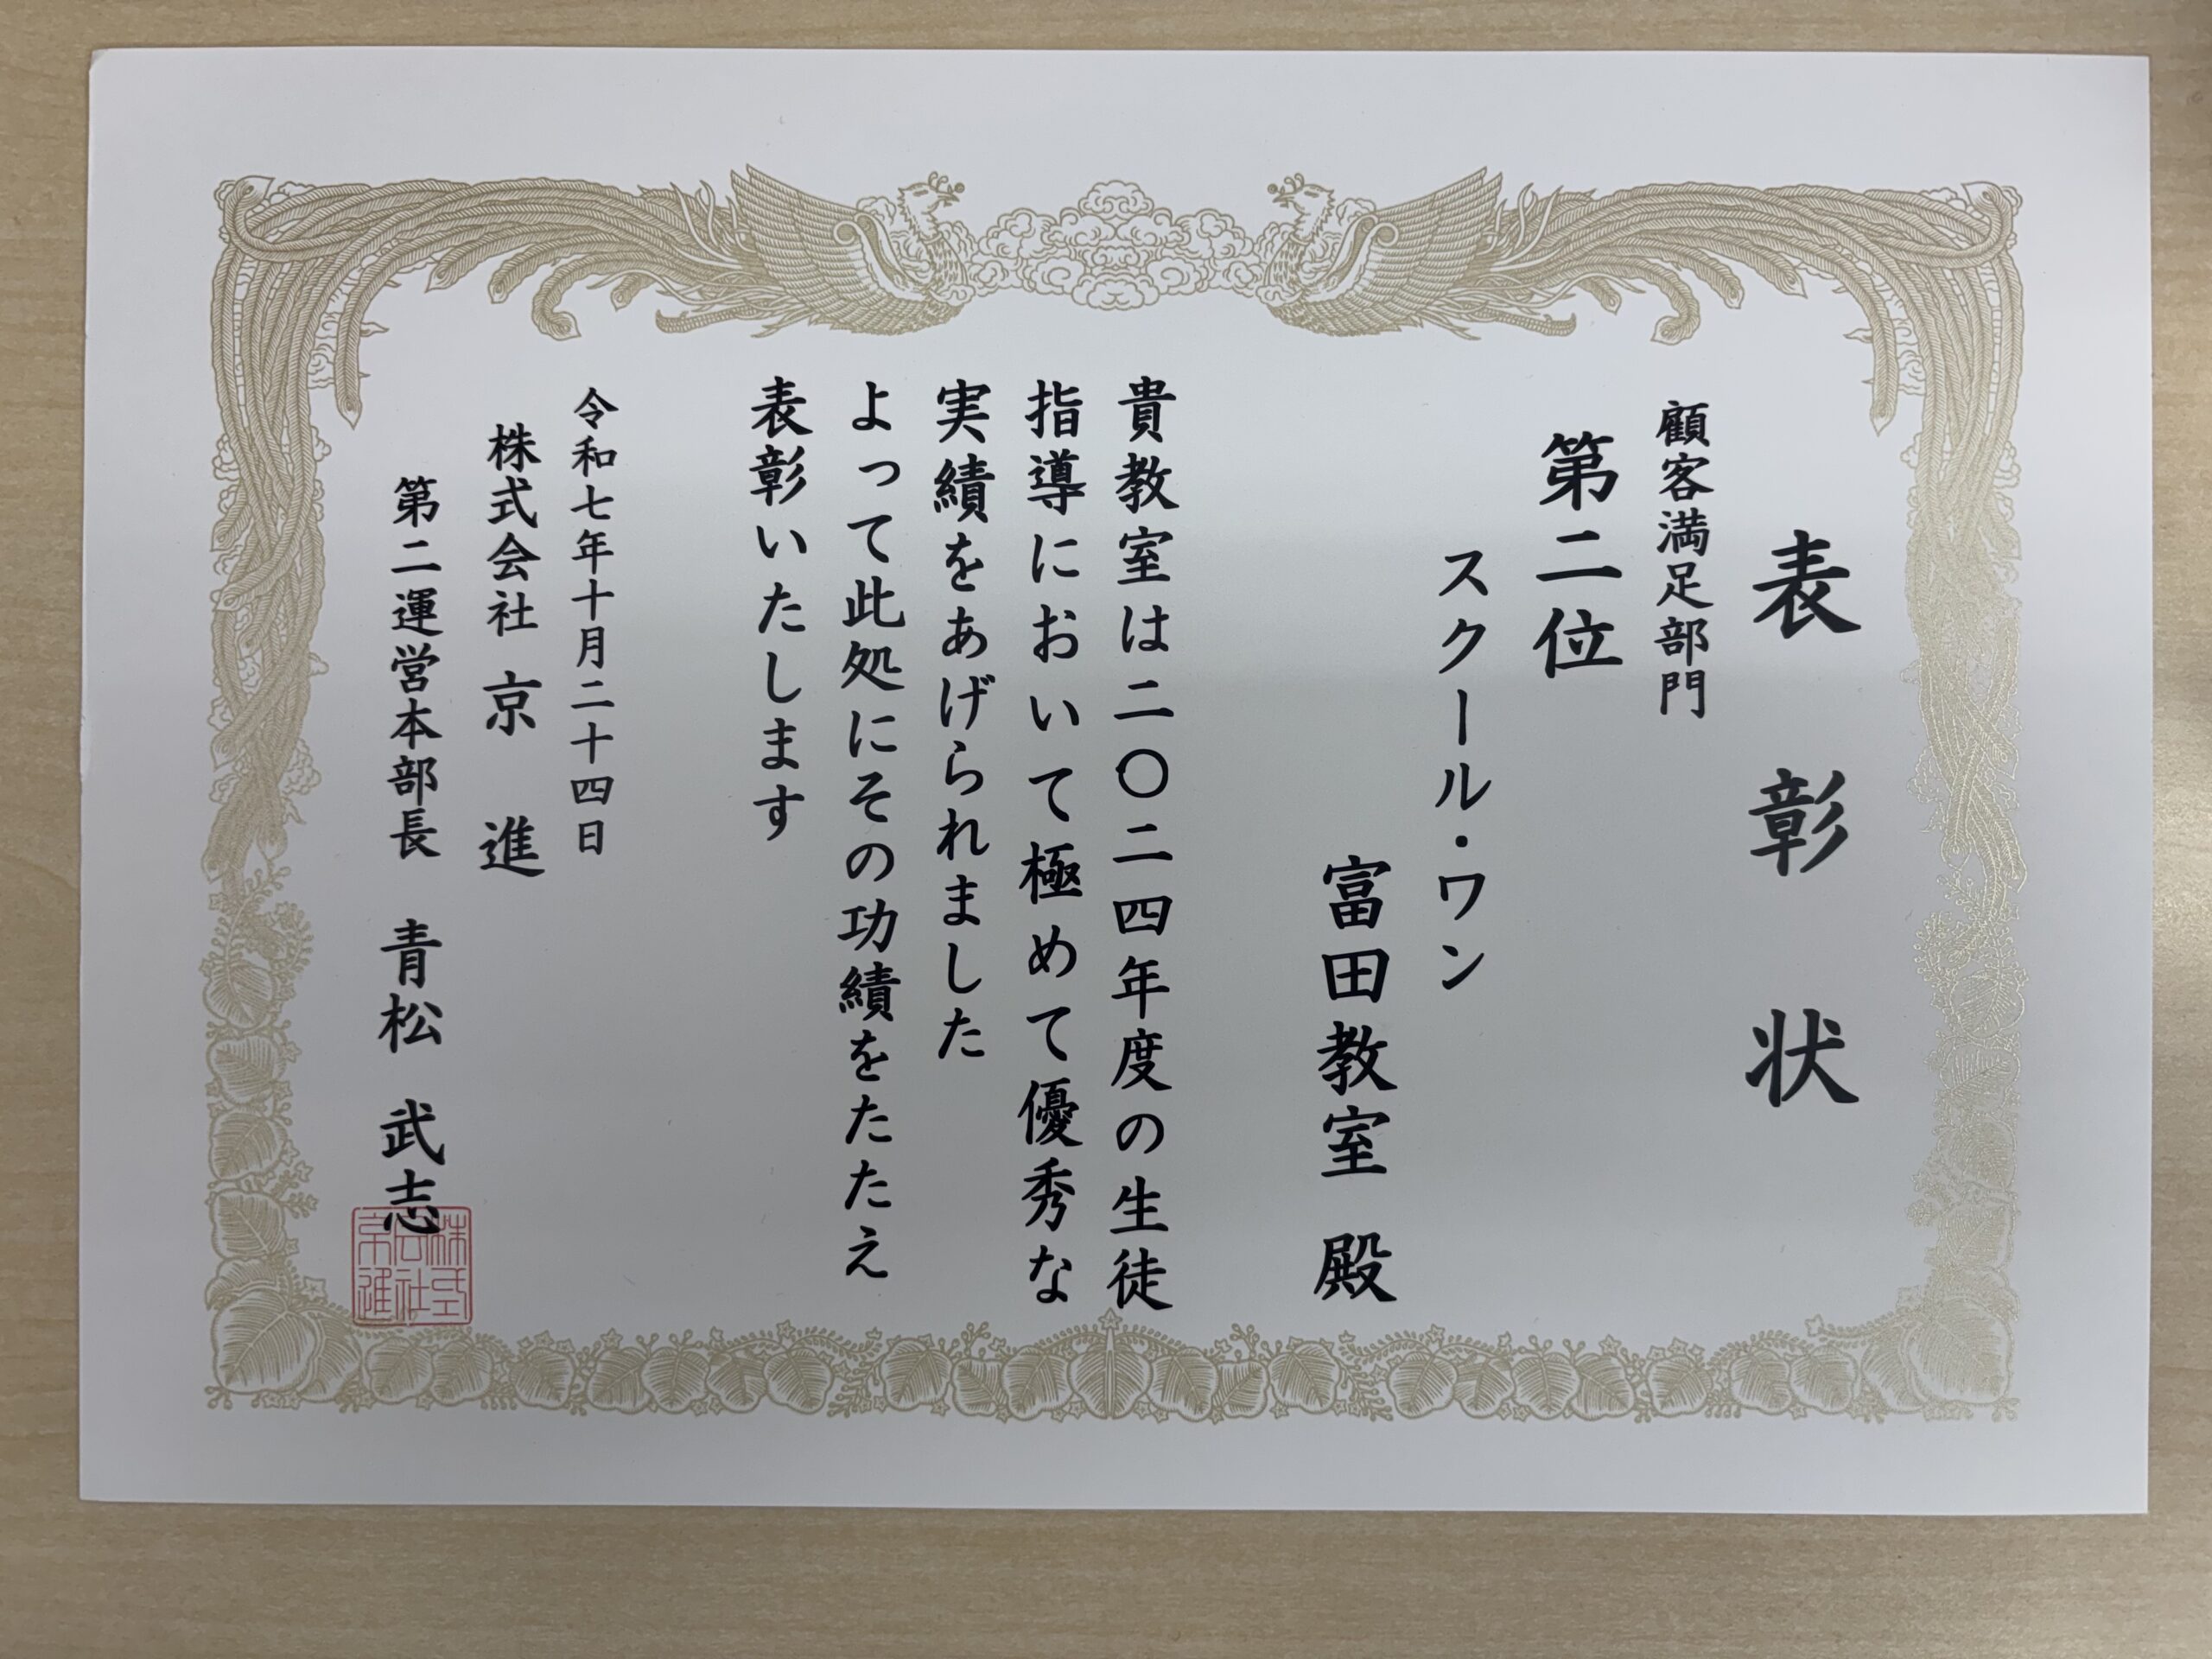 表彰状
顧客満足部門
第二位
スクール・ワン
富田教室 殿
貴教室は二〇二四年度の生徒
指導において極めて優秀な
実績をあげられました
よって此処にその功績をたたえ
表彰いたします
令和七年十月二十四日
株式会社 京 進
第二運営本部長 青松 武志
株式
会社
京進